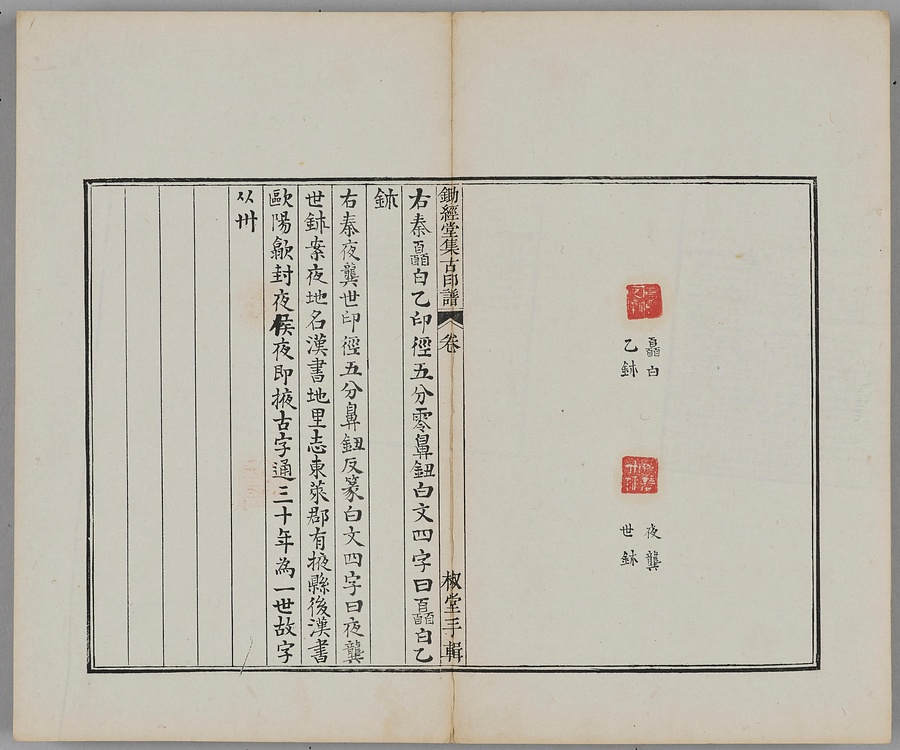 白
乙鉨
夜龔
世鉨
鋤經堂集古印譜
卷
椒堂手輯
右秦𦣻𦣻𦣻白乙印徑五分零鼻鈕白文四字曰𦣻𦣻𦣻白乙
鉨
右秦夜龔世印徑五分鼻鈕反篆白文四字曰夜龔
世鉨案夜地名漢書地里志東萊郡有掖縣後漢書
歐陽歙封夜侯夜即掖古字通三十年為一世故字
从卅